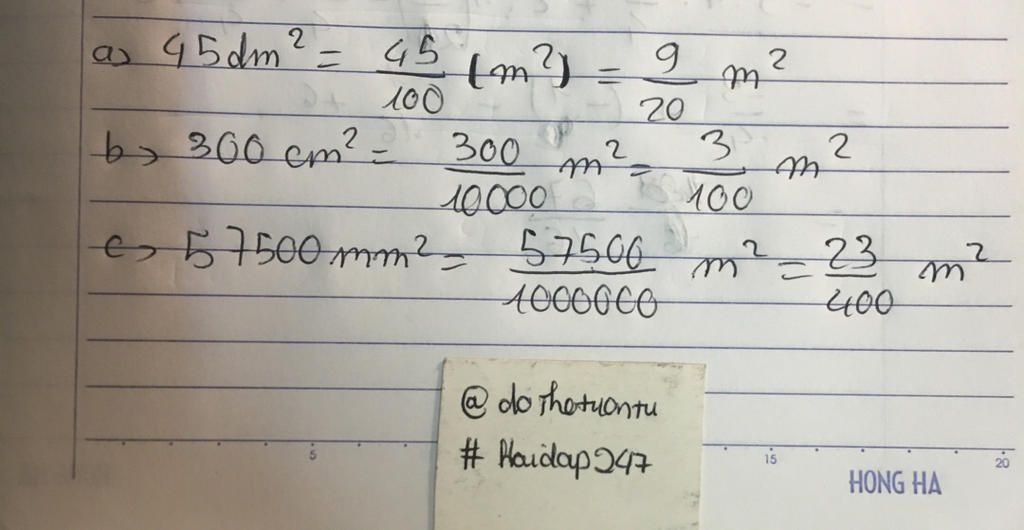 a) 45dm² = 45/100 (m²) = 9/20 m²
b) 300 cm² = 300/10000 m² = 3/100 m²
c) 57500mm² = 57500/1000000 m² = 23/400 m²
@ dothotuontu
# Hoidap247
5 15 20
HONG HA